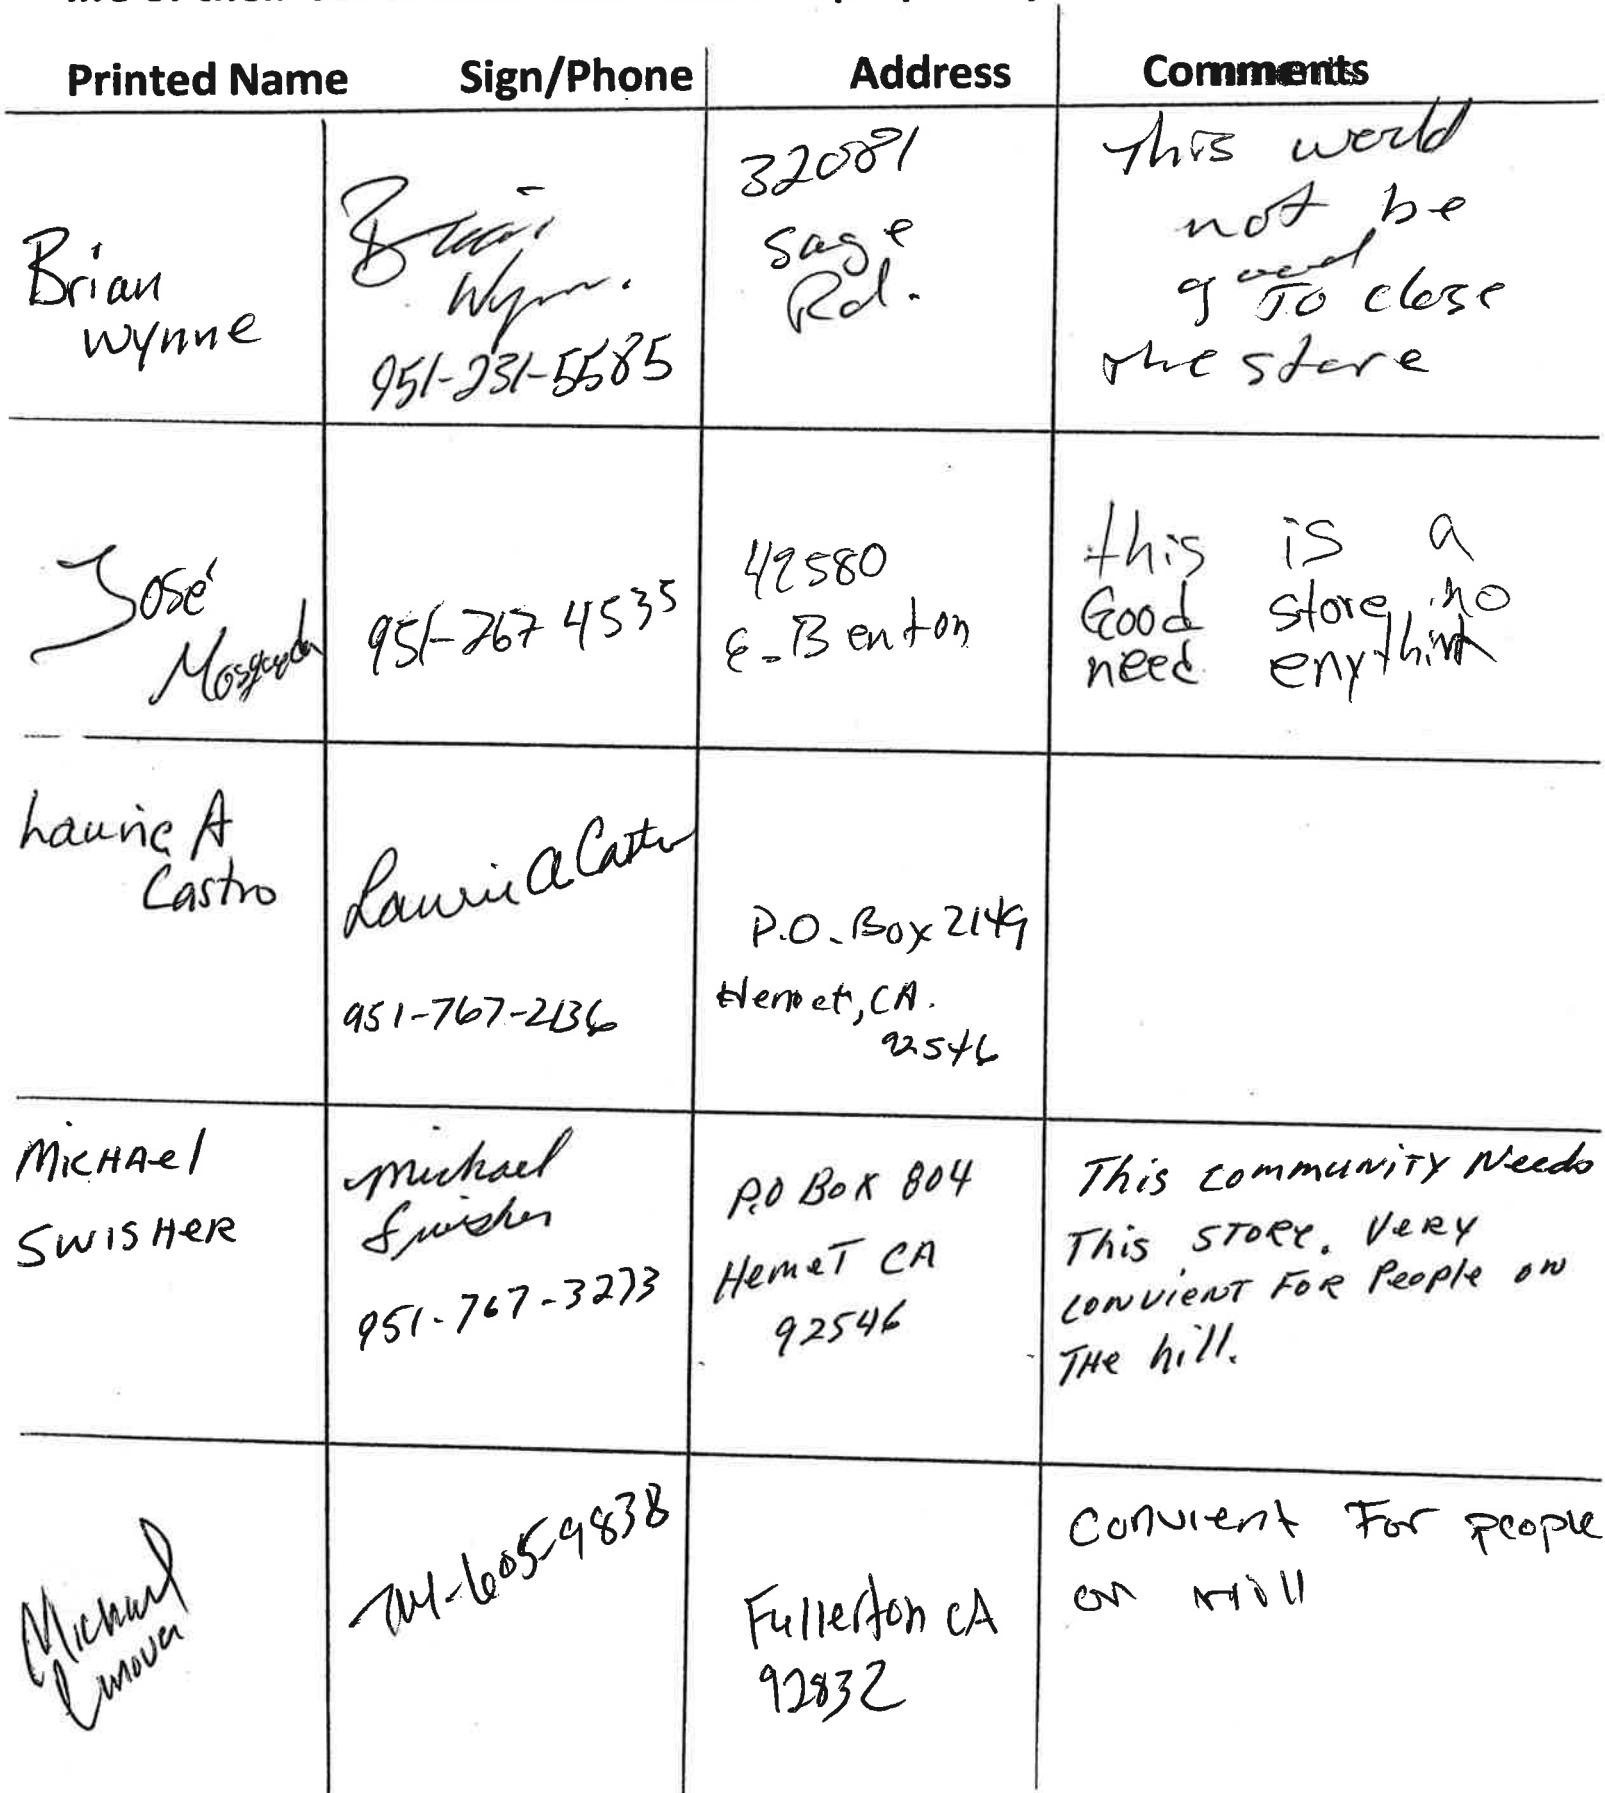 Printed Name Sign/Phone Address Comments
Brian
Wynne
Brian
Wynne.
951-231-5585
32081
Sage
Rd.
This world
not be
good
To close
the store
José
951-767 4535
42580
E. Benton
this is a
Good store, no
need enything
Laurie A
Castro
Laurie A Castro
951-767-2136
P.O. Box 2149
Hemet, CA.
92546
MICHAel
SWISHER
Michael
Swisher
951-767-3273
P.O Box 804
HemeT CA
92546
This community Needs
This STORE. VeRY
CONVIENT FOR People ON
THe hill.
Michael
714-605-9838
Fullerton CA
92832
Convient For people
on Hill